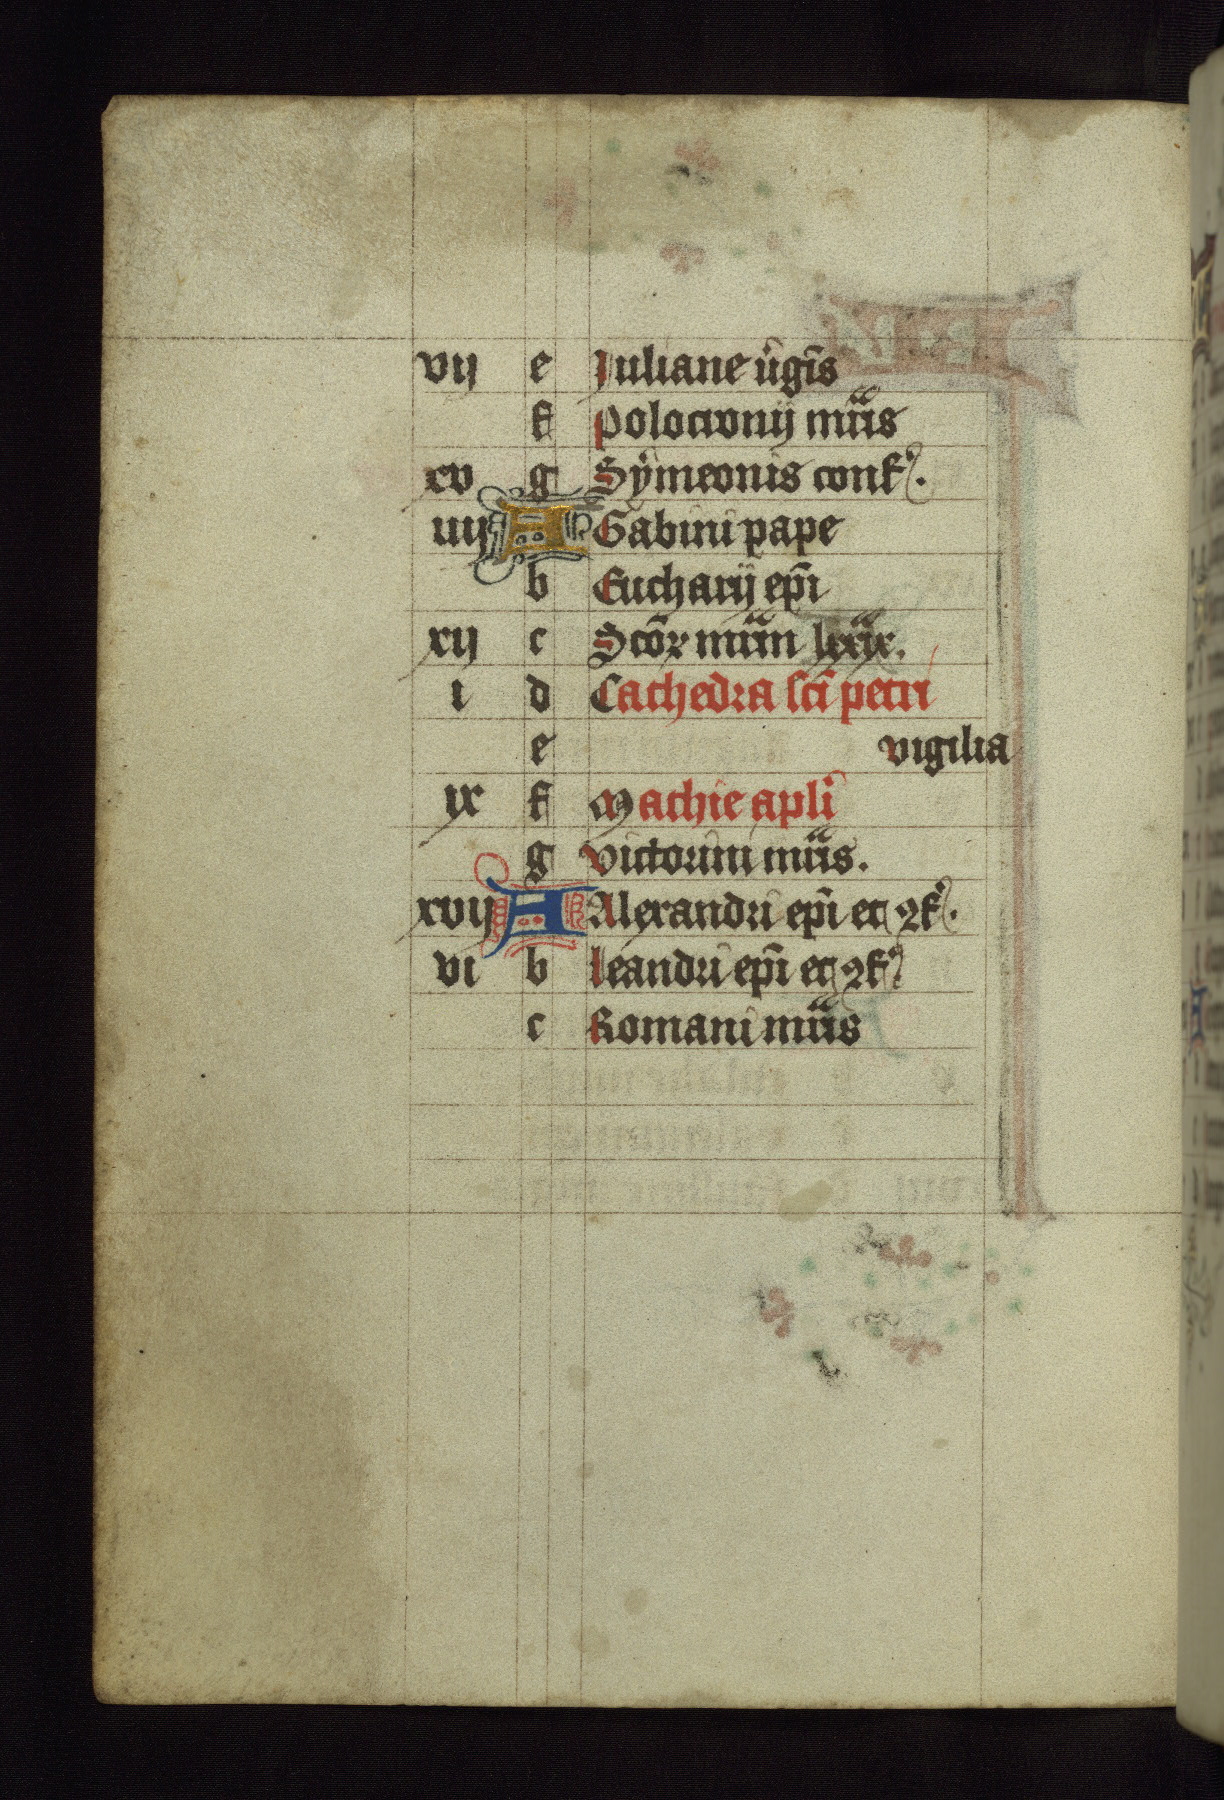 vij e Juliane u̇gı̄s
f Polocronij mr̄is
xv g Sẏmeonis conf̄.
iiij A Gabini pape
b Eucharij ep̄i
xij c Scōꝝ mr̄m lxxix.
i d Cathedra sc̄i petri
e vigilia
ix f Mathie apl̄i
g Victorini mr̄is.
xvij A Alexandri ep̄i et ꝯf̄.
vi b Leandri ep̄i et ꝯf̄
c Romani mr̄is